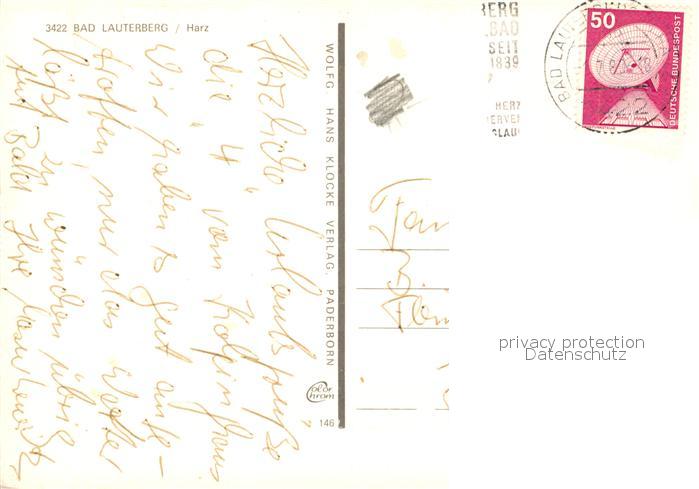 3422 BAD LAUTERBERG / Harz
Herzliche Urlaubsgrüße
die "4" vom Kolpinghaus
Wir haben es gut ange-
troffen, nur das Wetter
läßt zu wünschen übrig
Auf bald Ihre
WOLFG. HANS KLOCKE VERLAG, PADERBORN
Color
chrom
146
BERG
BAD
SEIT
1839
HERZ
NERVE
SLAU
BAD LAUTERBERG
50
DEUTSCHE BUNDESPOST
Fam
privacy protection
Datenschutz